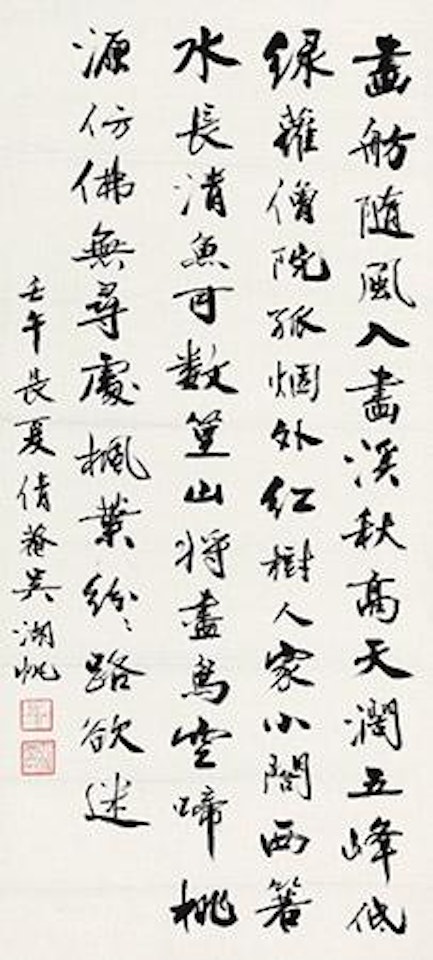 畫舫隨風入畫溪秋高天濶五峰低
綠蘿僧院孤烟外紅樹人家小閣西箬
水長清魚可數篁山將盡鳥空啼桃
源仿佛無尋處楓葉紛〻路欲迷
壬午長夏倩菴吳湖帆